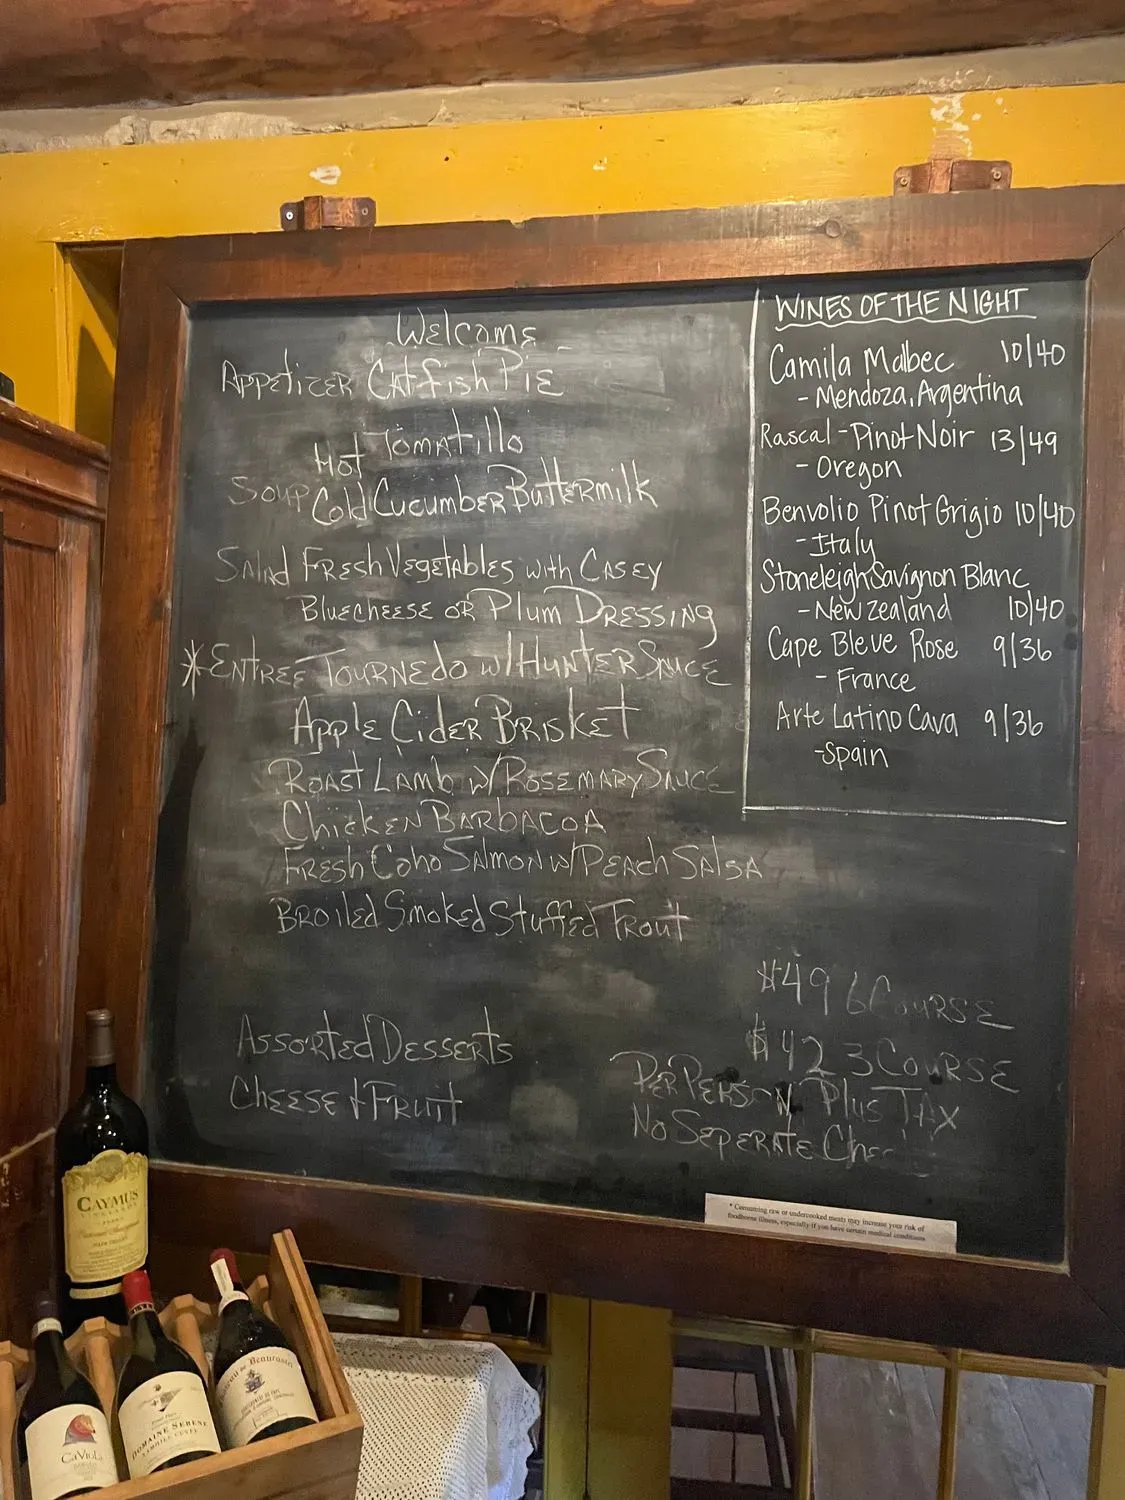 Welcome
Appetizer Catfish Pie
Hot Tomatillo
Soup Cold Cucumber Buttermilk
Salad Fresh Vegetables with Casey
Bluecheese or Plum Dressing
*Entree Tournedo w/Hunter Sauce
Apple Cider Brisket
Roast Lamb w/Rosemary Sauce
Chicken Barbacoa
Fresh Coho Salmon w/Peach Salsa
Broiled Smoked Stuffed Trout
Assorted Desserts
Cheese + Fruit
$49 6 Course
$42 3 Course
Per Person Plus Tax
No Seperate Che
WINES OF THE NIGHT
Camila Malbec 10/40
- Mendoza, Argentina
Rascal - Pinot Noir 13/49
- Oregon
Benvolio Pinot Grigio 10/40
- Italy
Stoneleigh Savignon Blanc
- New zealand 10/40
Cape Bleve Rose 9/36
- France
Arte Latino Cava 9/36
-Spain
* Consuming raw or undercooked meats may increase your risk of
foodborne illness, especially if you have certain medical conditions
CAYMUS
VINEYARDS
CaViola
DOMAINE SERENE
de Beaucastel